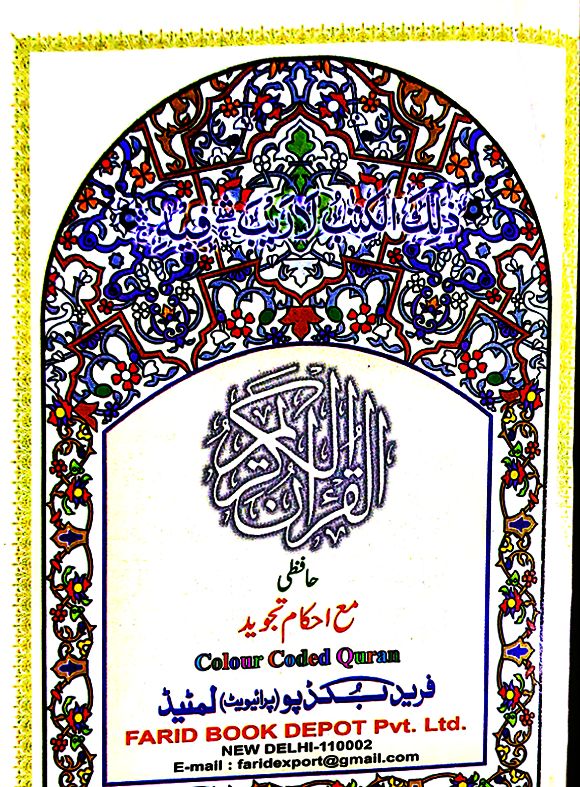 ذٰلِكَ الْكِتٰبُ لَا رَيْبَ فِيْهِ
القرآن الكريم
حافظی
مع احکام تجوید
Colour Coded Quran
فرید بکڈپو (پرائیویٹ) لمٹیڈ
FARID BOOK DEPOT Pvt. Ltd.
NEW DELHI-110002
E-mail : faridexport@gmail.com